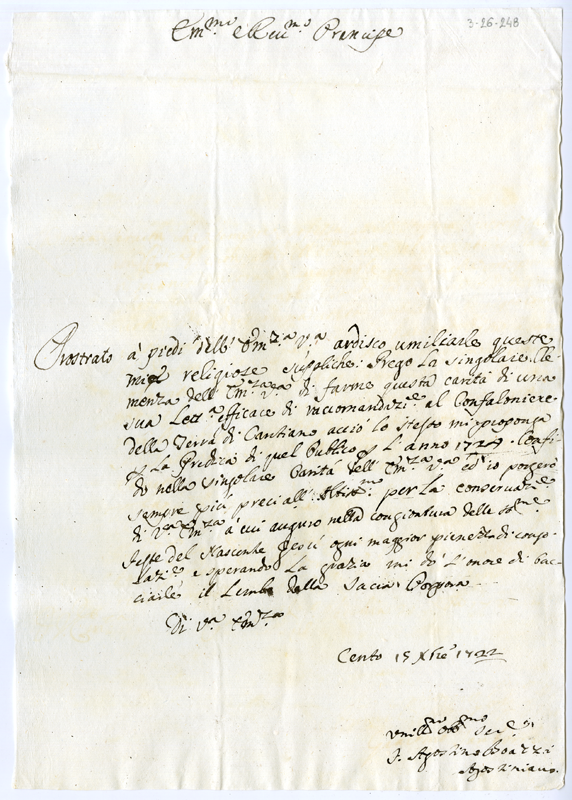 3-26-248
Em.mo e Rev.mo Principe
Prostrato à piedi dell' Em.za V.ra ardisco umiliarle queste
mie religiose suppliche: Prego La singolare Cle=
menza dell' Em.za V.ra di farme questa carità di una
sua Lett.ra efficace di racomandaz.e al Confaloniere
della Terra di Cantiano acciò lo stesso mi proponga
p La Predica di quel Publico p L'anno 1724. Confi=
do nella singolare Carità dell' Em.za V.ra ed io porgerò
sempre più preci all' Altiss.mo per La conservaz.e
di V.ra Em.za à cui auguro nella congiontura delle SS.me
Feste del Nascente Gesù ogni maggior pienezza di conso=
laz.e e sperando La grazia mi dò L'onore di bac=
ciarle il Lembo della Sacra Porpora
Di V.ra Em.za
Cento 15 Xbre 1722
Umiliss.mo Obb.mo Ser.e
F. Agostino Boazzi
Agostiniano.